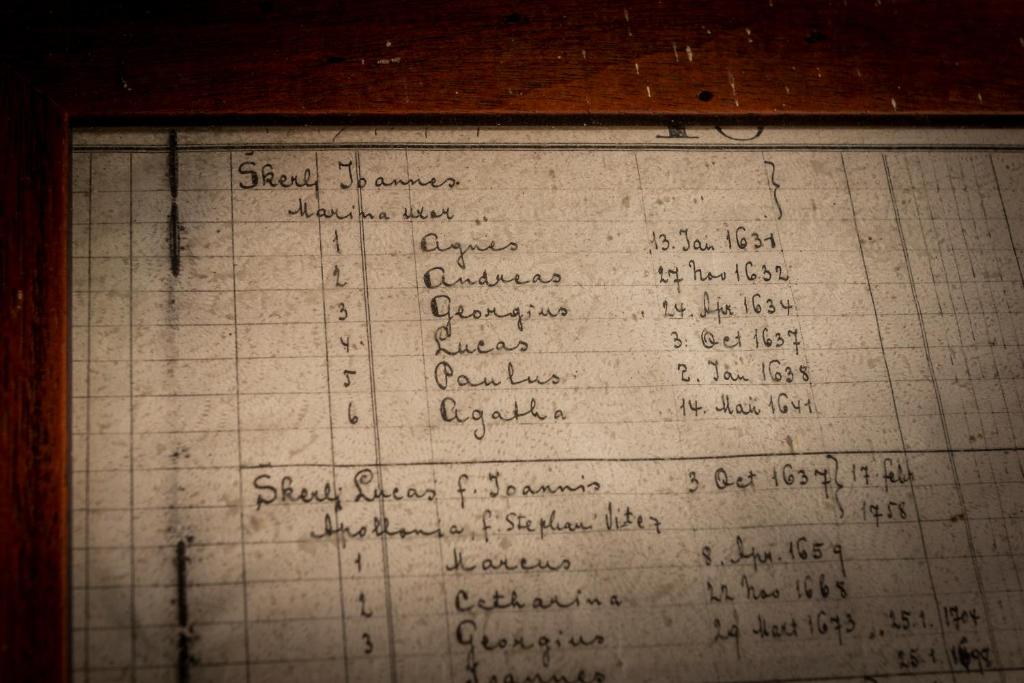 Škerlj Ioannes
Marina uxor
1 Agnes 13. Jan 1631
2 Andreas 27 Nov 1632
3 Georgius 24. Apr 1634
4. Lucas 3. Oct 1637
5 Paulus 2. Jan 1638
6 Agatha 14. Maii 1641
Škerlj Lucas f. Ioannis 3 Oct 1637 17 febr
Apollonia f. Stephani Vitez 1758
1 Marcus 8. Apr. 1659
2 Catharina 22 Nov 1668
3 Georgius 29 Mart 1673 25.1. 1704
Ioannes 25.1.